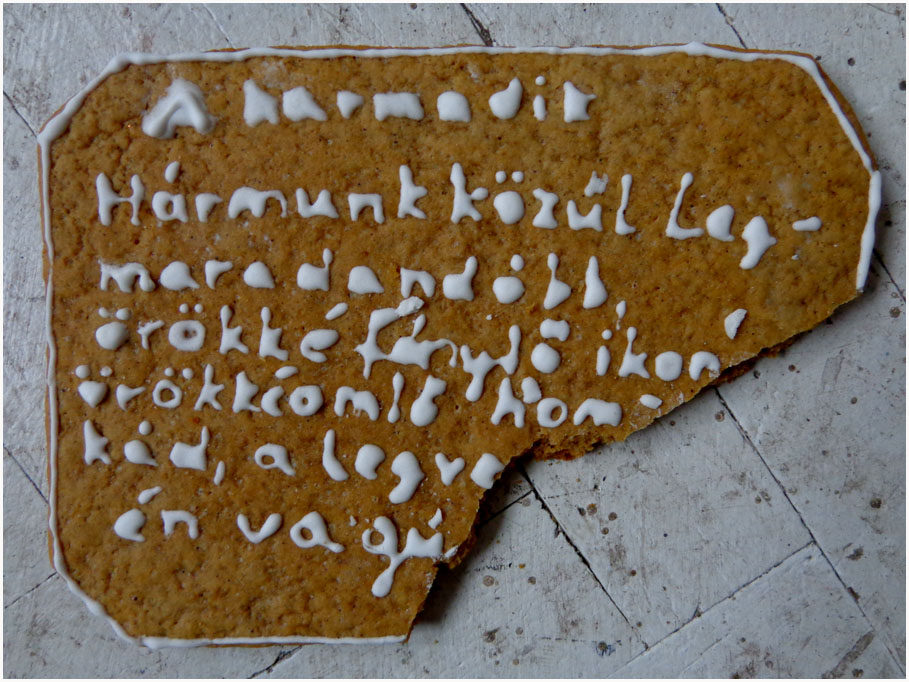 A harmadik
Hármunk közül leg-
maradandóbb
örökké fénylő ikon
örökké omló hom-
kád, a legva
én vagy